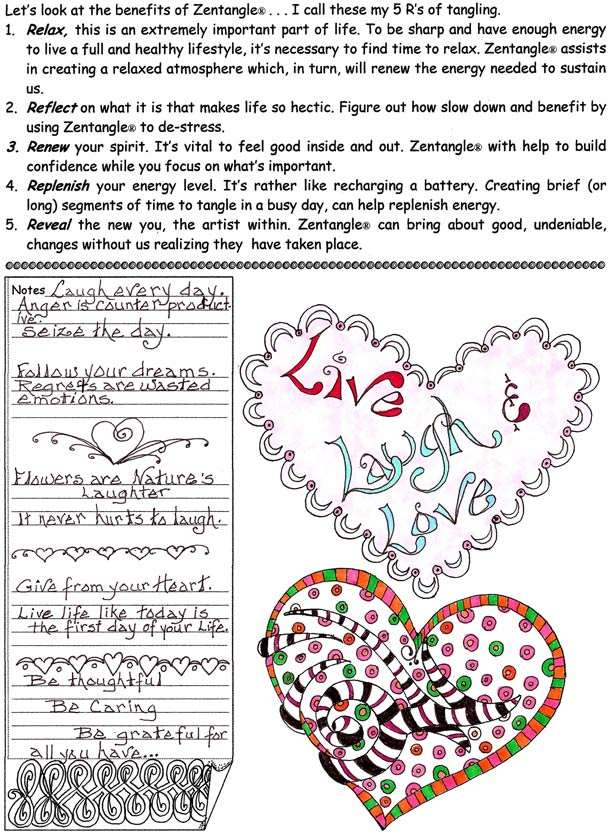 Let's look at the benefits of Zentangle® . . . I call these my 5 R's of tangling.
1. Relax, this is an extremely important part of life. To be sharp and have enough energy
to live a full and healthy lifestyle, it's necessary to find time to relax. Zentangle® assists
in creating a relaxed atmosphere which, in turn, will renew the energy needed to sustain
us.
2. Reflect on what it is that makes life so hectic. Figure out how slow down and benefit by
using Zentangle® to de-stress.
3. Renew your spirit. It's vital to feel good inside and out. Zentangle® with help to build
confidence while you focus on what's important.
4. Replenish your energy level. It's rather like recharging a battery. Creating brief (or
long) segments of time to tangle in a busy day, can help replenish energy.
5. Reveal the new you, the artist within. Zentangle® can bring about good, undeniable,
changes without us realizing they have taken place.
Notes Laugh every day.
Anger is counter product-
ive.
Seize the day.
Follow your dreams.
Regrets are wasted
emotions.
Flowers are Nature's
Laughter
It never hurts to laugh.
Give from your Heart.
Live life like today is
the first day of your Life.
Be thoughtful
Be Caring
Be grateful for
all you have...
Live
Laugh
Love